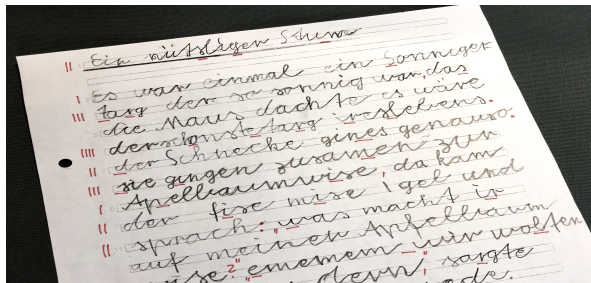 Ein nützligen Schirm
Es war einmal ein Sonniger
targ der so sonnig war, das
die Maus dachte es wäre
der schönste targ ihres lebens.
der Schnecke gines genauso.
sie gingen zusamen zur
Apfellbaumwise, da kam
der fise mise Igel und
sprach: was macht ir
auf meiner Apfellbaum
wise?" wir wolten
sagte